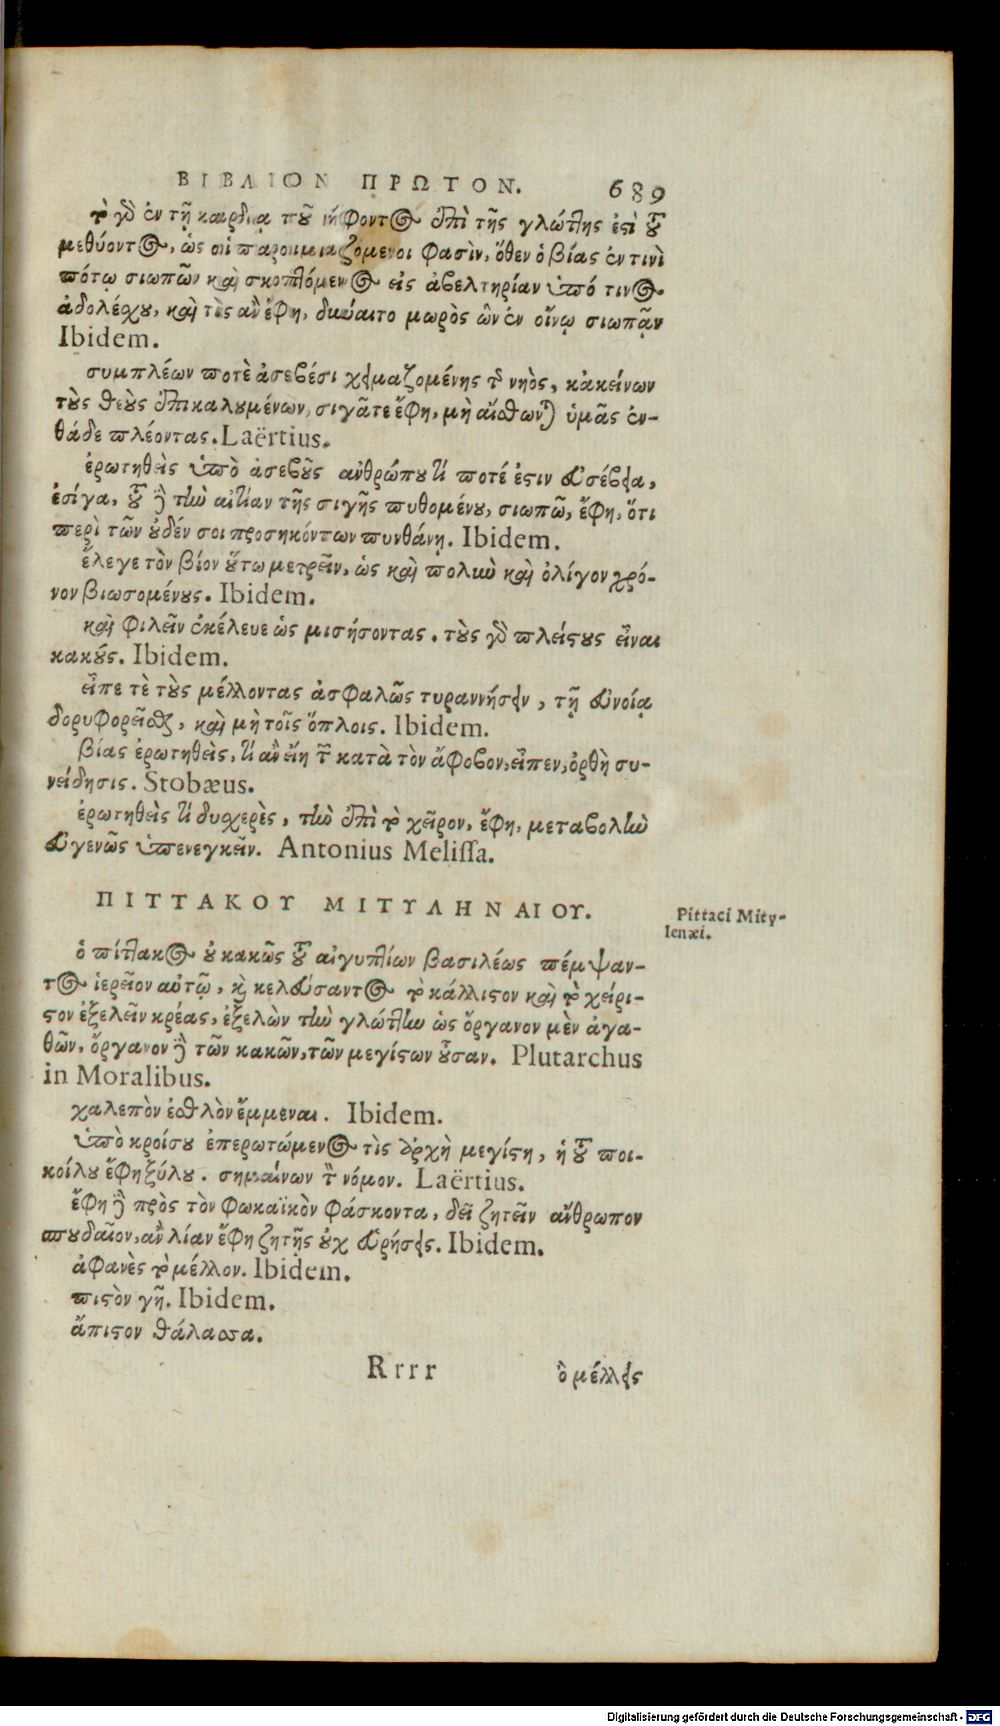 ΒΙΒΛΙΟΝ ΠΡΩΤΟΝ. 689
τὸ γὸ ἐν τῇ καρδίᾳ τοῦ νήφοντος ἐπὶ τῆς γλώττης ἐστὶ τοῦ
μεθύοντος, ὡς οἱ παροιμιαζόμενοι φασὶν, ὅθεν ὁ βίας ἐν τινὶ
πότῳ σιωπῶν καὶ σκοπτόμενος εἰς ἀβελτηρίαν ὑπό τινος
ἀδολέχου, καὶ τὶς ἂν ἔφη, δύναιτο μωρὸς ὢν ἐν οἴνῳ σιωπᾷν
Ibidem.
συμπλέων ποτὲ ἀσεβέσι χειμαζομένης τῆς νηὸς, κἀκείνων
τοὺς θεοὺς ἐπικαλουμένων, σιγᾶτε ἔφη, μὴ αἴσθωνται ὑμᾶς ἐν-
θάδε πλέοντας. Laërtius.
ἐρωτηθεὶς ὑπὸ ἀσεβοῦς ἀνθρώπου τί ποτέ ἐστιν εὐσέβεια,
ἐσίγα, τοῦ δὲ τὴν αἰτίαν τῆς σιγῆς πυθομένου, σιωπῶ, ἔφη, ὅτι
περὶ τῶν οὐδέν σοι προσηκόντων πυνθάνῃ. Ibidem.
ἔλεγε τὸν βίον οὕτω μετρεῖν, ὡς καὶ πολὺν καὶ ὀλίγον χρό-
νον βιωσομένους. Ibidem.
καὶ φιλεῖν ἐκέλευε ὡς μισήσοντας. τοὺς γὸ πλείστους εἶναι
κακούς. Ibidem.
εἶπε τὲ τοὺς μέλλοντας ἀσφαλῶς τυραννήσειν, τῇ εὐνοίᾳ
δορυφορεῖσθαι, καὶ μὴ τοῖς ὅπλοις. Ibidem.
βίας ἐρωτηθεὶς, τί ἂν εἴη τῶν κατὰ τὸν ἄφοβον, εἶπεν, ὀρθὴ συ-
νείδησις. Stobæus.
ἐρωτηθεὶς τί δυσχερὲς, τὴν ἐπὶ τὸ χεῖρον, ἔφη, μεταβολὴν
εὐγενῶς ὑπενεγκεῖν. Antonius Melissa.
ΠΙΤΤΑΚΟΥ ΜΙΤΥΛΗΝΑΙΟΥ.
Pittaci Mity-
lenæi.
ὁ πίττακος οὐ κακῶς τοῦ αἰγυπτίων βασιλέως πέμψαν-
τος ἱερεῖον αὐτῷ, καὶ κελεύσαντος τὸ κάλλιστον καὶ τὸ χείρι-
στον ἐξελεῖν κρέας, ἐξελὼν τὴν γλώττην ὡς ὄργανον μὲν ἀγα-
θῶν, ὄργανον δὲ τῶν κακῶν, τῶν μεγίστων οὖσαν. Plutarchus
in Moralibus.
χαλεπὸν ἐσθλὸν ἔμμεναι. Ibidem.
ὑπὸ κροίσου ἐπερωτώμενος τὶς ἀρχὴ μεγίστη, ἡ τοῦ ποι-
κοίλου ἔφη ξύλου. σημαίνων τὸν νόμον. Laërtius.
ἔφη δὲ πρὸς τὸν φωκαϊκὸν φάσκοντα, δεῖ ζητεῖν ἄνθρωπον
σπουδαῖον, ἂν λίαν ἔφη ζητῇς οὐχ εὑρήσεις. Ibidem.
ἀφανὲς τὸ μέλλον. Ibidem.
πιστὸν γῆ. Ibidem.
ἄπιστον θάλασσα.
Rrrr ὃ μέλλεις
Digitalisierung gefördert durch die Deutsche Forschungsgemeinschaft - DFG